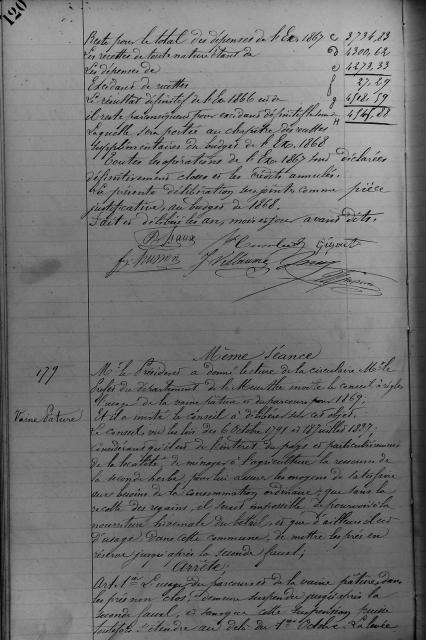 120
Reste pour le total des dépenses de l'Ex. 1867 c 3734,23
Les recettes de toute nature étant de D 4300,62
Les dépenses de e 4273,33
Excédant de recettes f 27,29
Le résultat définitif de l'Ex. 1866 est de g
il reste par conséquent pour excédant définitif la somme H
Laquelle sera portée au chapitre des recettes
supplémentaires du budget de l'Ex. 1868.
Toutes les opérations de l'Ex. 1867 sont déclarées
définitivement closes et les crédits annulés.
La présente délibération sera jointe comme pièce
justificative, au budget de 1868.
Fait et délibéré les an, mois et jour avant dits.
Même Séance
179
Mr. le Président a donné lecture de la circulaire Mr. le
Préfet du département de la Meurthe invite le conseil à régler
l'usage de la vaine pâture et du parcours pour 1869;
Vaine Pâture
Et il a invité le conseil à délibérer sur cet objet.
Le conseil, vu les lois des 6 Octobre 1791 et 18 Juillet 1837;
considérant qu'il est de l'intérêt du pays et particulièrement
de la localité, de ménager à l'agriculture la ressource de
la seconde herbe, pour lui assurer les moyens de satisfaire
aux besoins de la consommation ordinaire; que sans la
récolte des regains, il serait impossible de pourvoir à la
nourriture hivernale du bétail, et que d'ailleurs il est
d'usage dans cette commune, de mettre les prés en
réserve jusqu'après la seconde faux;
Arrête:
Art. 1er L'usage du parcours et de la vaine pâture dans
les prés non clos, demeure suspendu jusqu'après la
seconde faux, sans que cette suspension puisse
toutefois s'étendre au delà du 1er Octobre. La levée